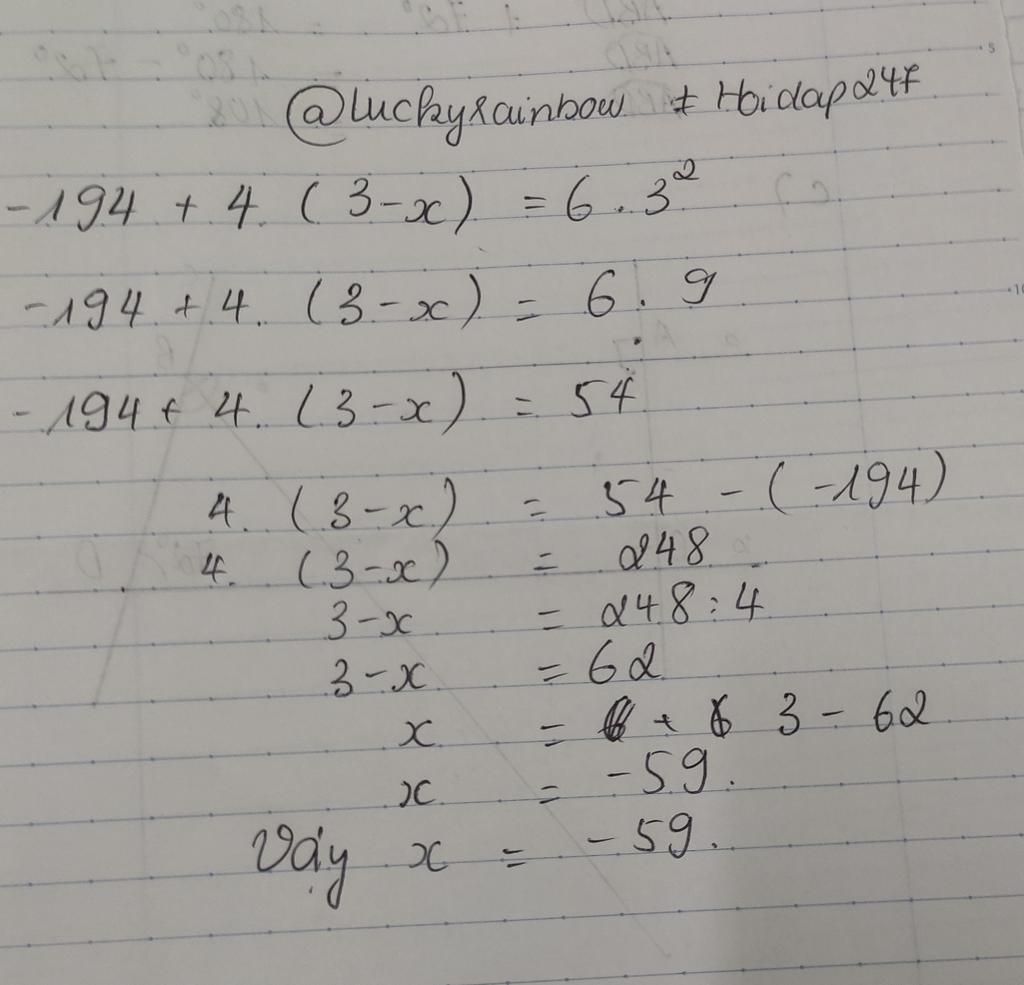 @luckyrainbow # Hoidap247
-194 + 4. (3-x) = 6.3²
-194 + 4. (3-x) = 6.9
-194 + 4. (3-x) = 54
4. (3-x) = 54 - (-194)
4. (3-x) = 248
3-x = 248:4
3-x = 62
x = 3 - 62
x = -59.
Vậy x = -59.